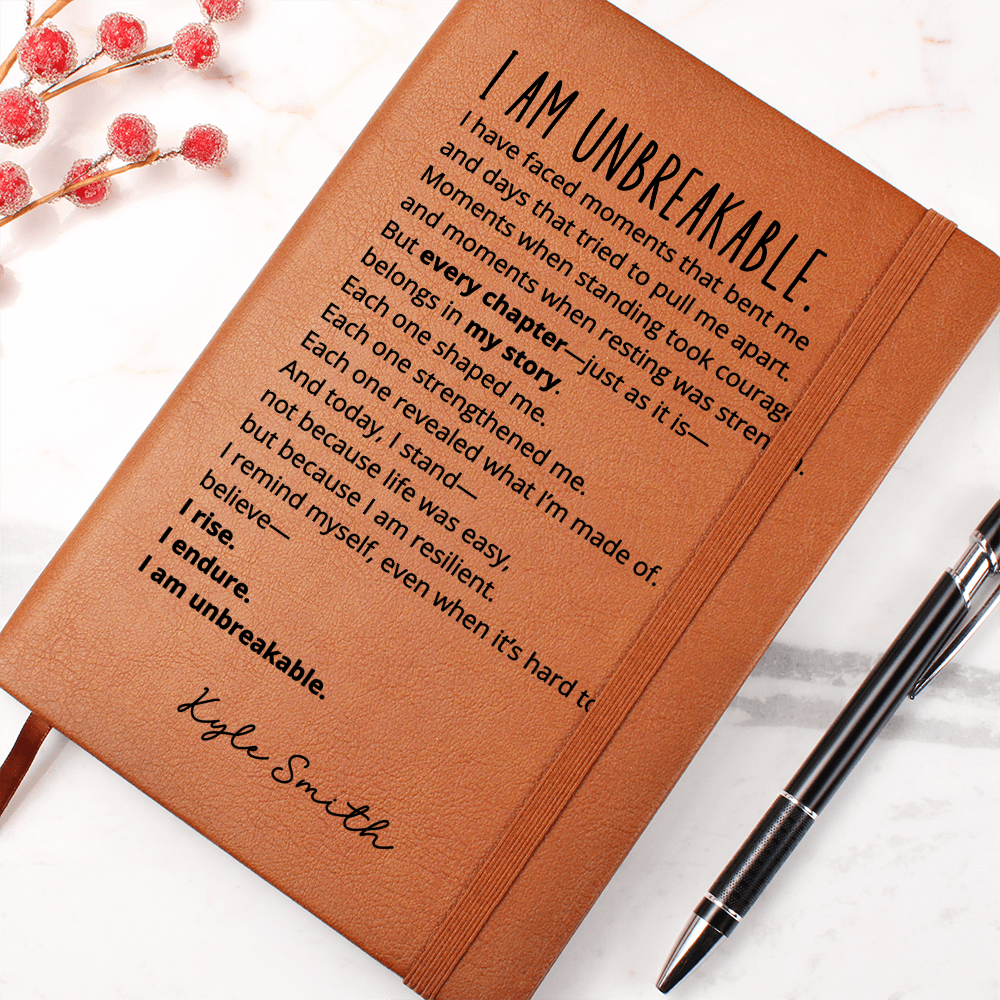 I AM UNBREAKABLE.
I have faced moments that bent me
and days that tried to pull me apart.
Moments when standing took courag
and moments when resting was stren
But every chapter—just as it is—
belongs in my story.
Each one shaped me.
Each one strengthened me.
Each one revealed what I'm made of.
And today, I stand—
not because life was easy,
but because I am resilient.
I remind myself, even when it's hard to
believe—
I rise.
I endure.
I am unbreakable.
Kyle Smith